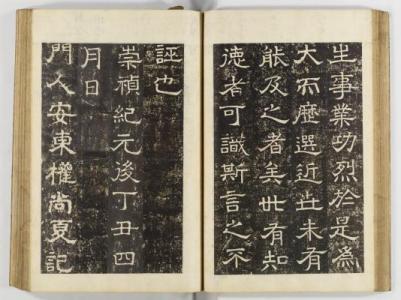 生事業功烈於是爲
大而歷選近世未有
能及之者矣世有知
德者可識斯言之不
誣也
崇禎紀元後丁丑四
月日
門人安東權尙夏記